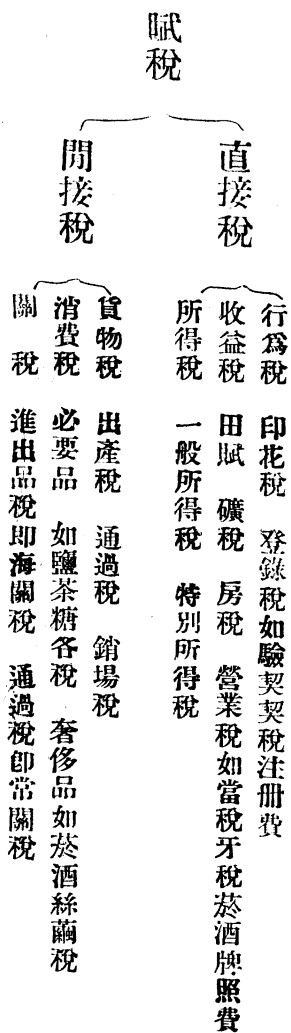 賦稅
直接稅
行爲稅 印花稅 登錄稅如驗契契稅注册費
收益稅 田賦 礦稅 房稅 營業稅如當稅牙稅菸酒牌照費
所得稅 一般所得稅 特別所得稅
間接稅
貨物稅 出產稅 通過稅 銷場稅
消費稅 必要品 如鹽茶糖各稅 奢侈品如菸酒絲繭稅
關稅 進出品稅卽海關稅 通過稅卽常關稅